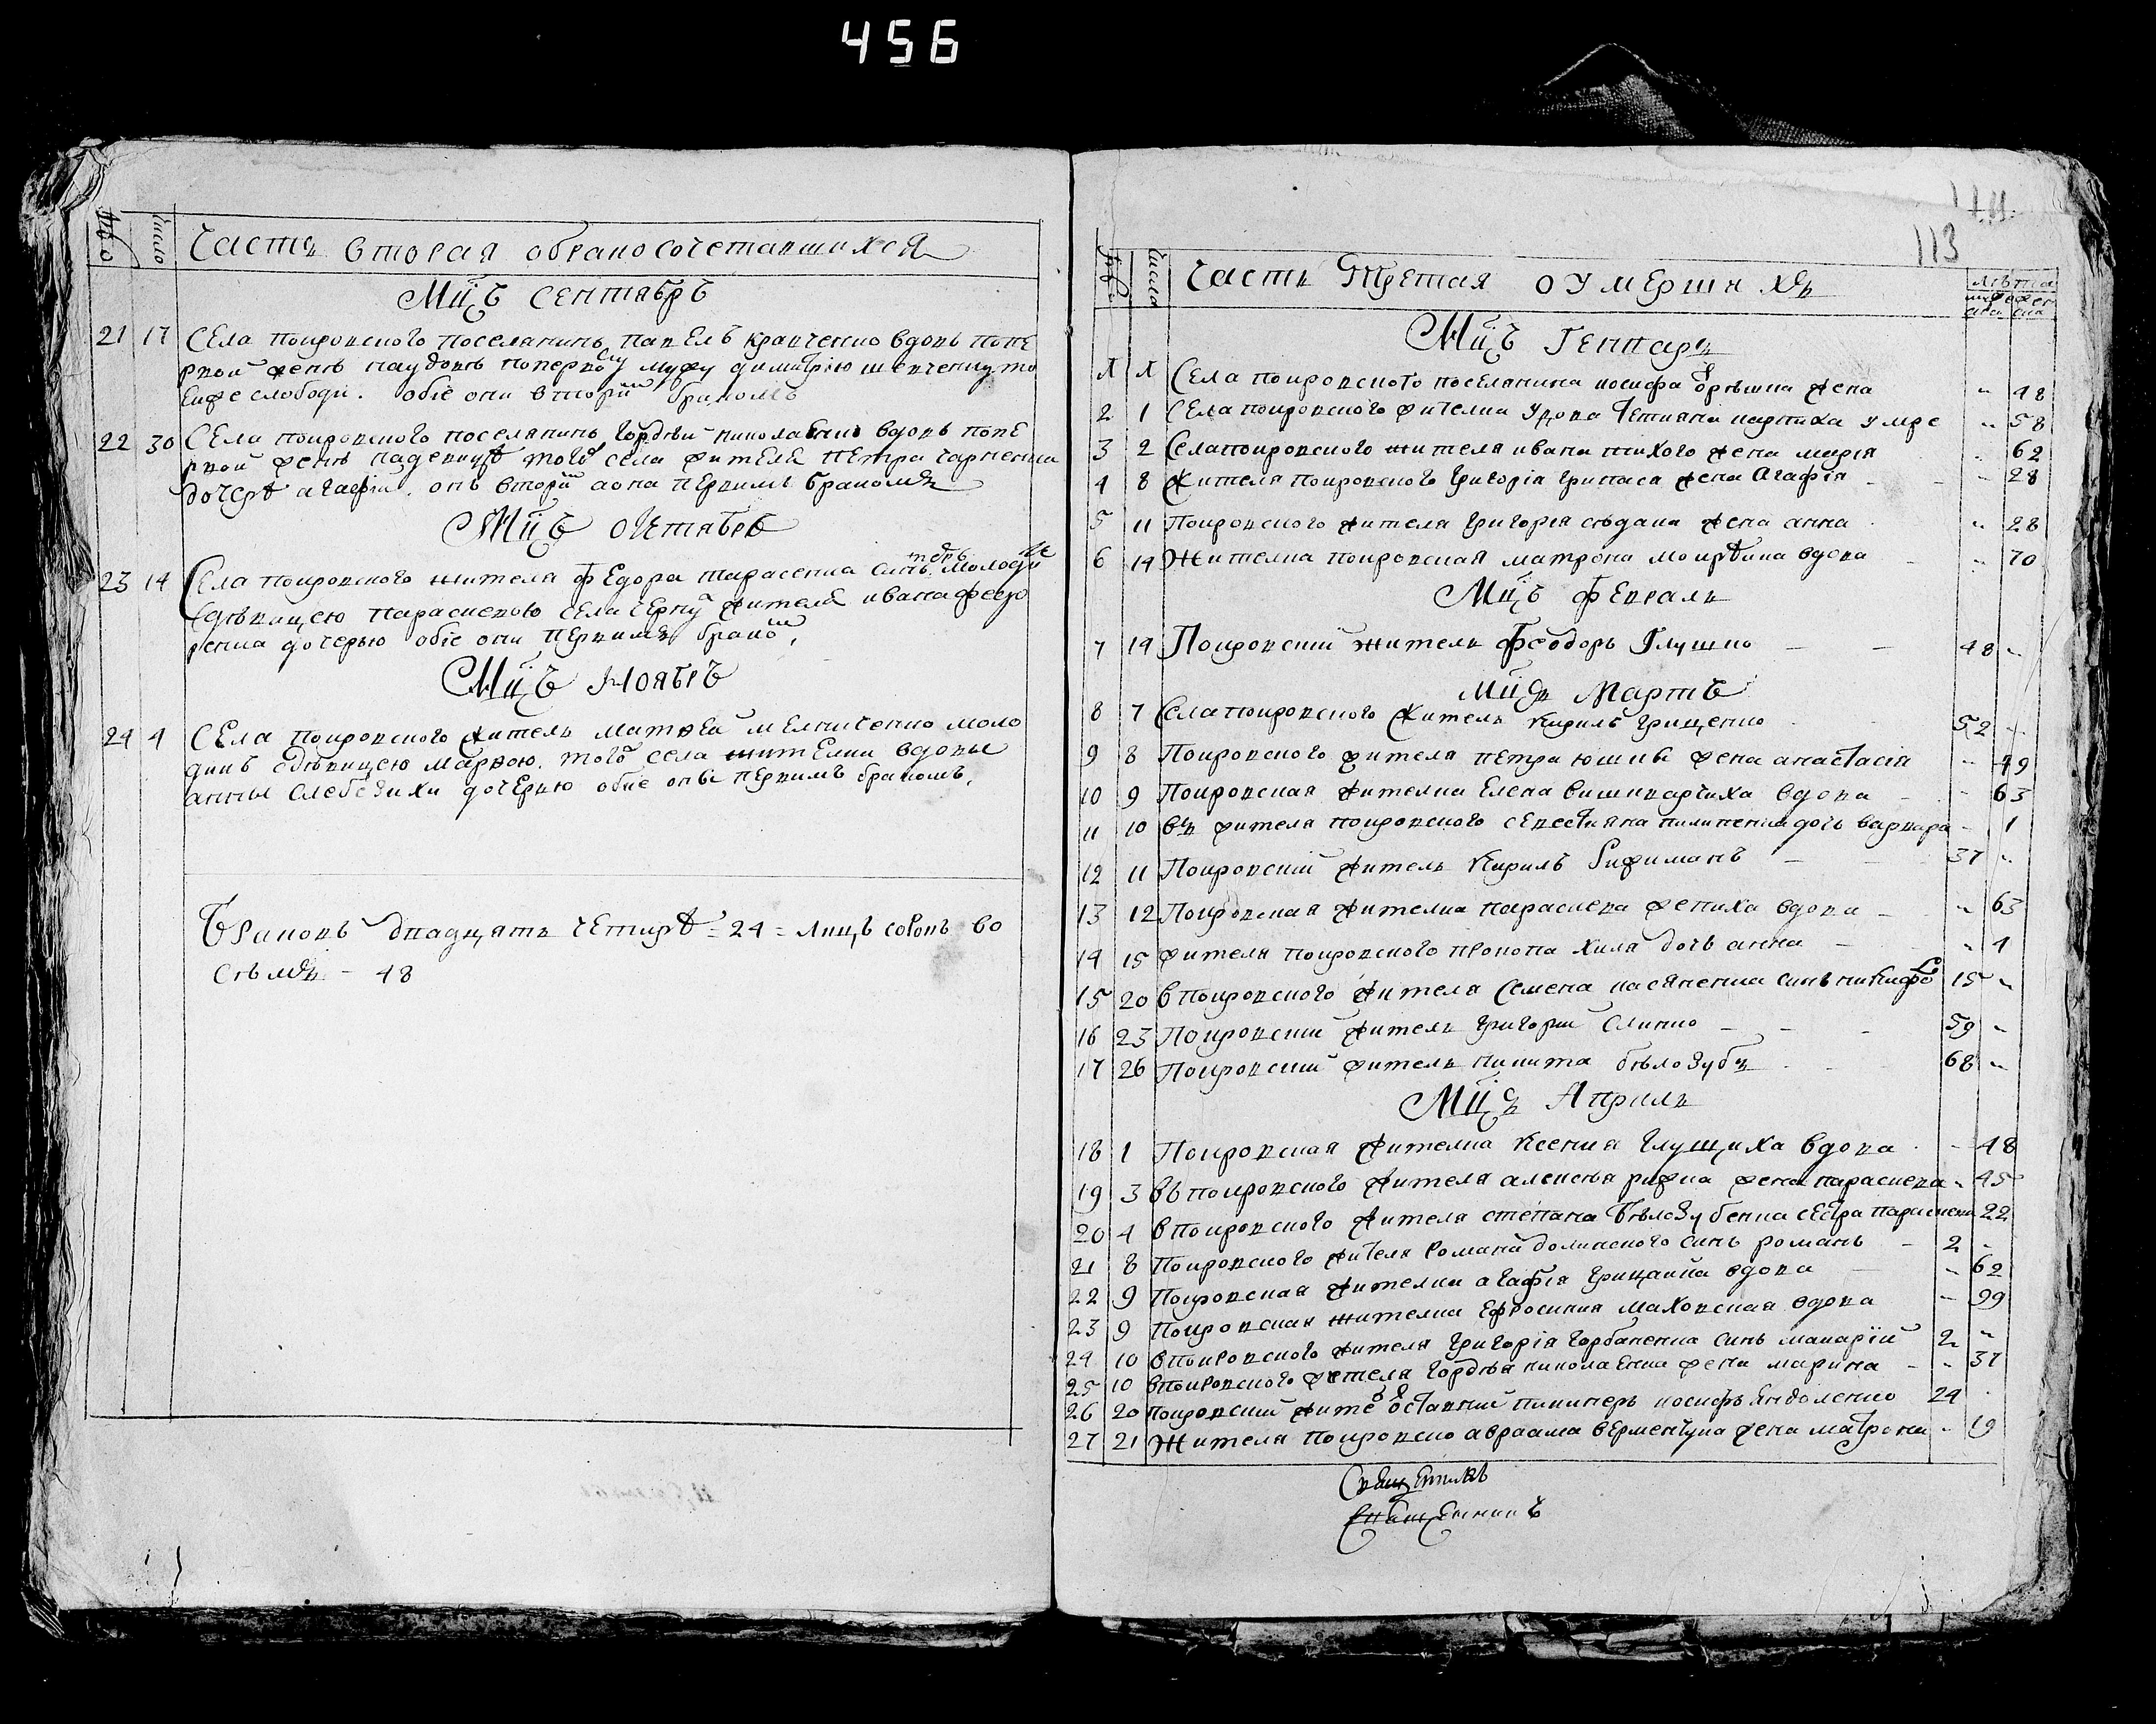 456
число Часть вторая обракосочетавшихся
Мцъ Сентябръ
21 17 Села покровского поселянинъ павелъ кравченко вдовъ попе
рвой женѣ
еифе слободи. обіе они вторiм бракомъ
22 30 Села покровского поселянинъ гордѣй николаенко вдовъ попе
рвой женѣ того села жителя петра
дочерѣ агафiи. онъ вторiй аона первимъ бракомъ
Мцъ октябръ
23 14 Села покровского жителя федора тарасенка синъ молоди
здѣвицею параскевою села жителя ивана федо
ренка дочерью обіе они первимъ брако м
Мцъ Ноябръ
24 4 Села покровского житель матвѣй мелниченко моло
дикъ здѣвицею марвою того села жителки вдовы
анны дочерю обіе оны первимъ бракомъ.
Браковъ двадцять четирѣ = 24 = лицъ сорокъ во
сѣмъ - 48
113
числа Часть Третая о умершихъ лѣта
Мцъ Генварь
1 1 Села покровского поселянина иосифа орѣшка жена " 48
2 1 Села покровского жителка удова тетияна умре " 58
3 2 Села покровского жителя ивана тихого жена марiя " 62
4 8 Жителя покровского григорiя грипаса жена агафiя " 28
5 11 Покровского жителя григорiя сѣдаша жена анна " 28
6 14 Жителка покровская матрона вдова " 70
Мцъ февраль
7 14 Покровскiй житель феодоръ глушко 48 "
Мцъ Мартъ
8 7 Села покровского житель кирилъ грищенко 52 "
9 8 Покровского жителя петра юшки жена анастасiя " 49
10 9 Покровская жителка елена вишнварчиха вдова " 63
11 10 въ жителя покровского севестияна пилипенка дочь варвара " 1
12 11 Покровскiй житель кирилъ 37 "
13 12 Покровская жителка параскева вдова " 63
14 15 жителя покровского прокопа хиля дочь анна " 4
15 20 в покровского жителя семена касяненка синъ никифо 15 "
16 23 Покровскiй житель григорiй слинко 59 "
17 26 Покровскiй житель никита бѣлозубъ 68 "
Мцъ Априль
18 1 Покровская жителка ксения глущиха вдова " 48
19 3 въ покровского жителя алексѣя рижка жена параскева " 45
20 4 в покровского жителя степана бѣлозубенка сестра параскева 22
21 8 Покровского жителя романа долинского синъ романъ 2 "
22 9 Покровская жителка агафiя грицаика вдова " 62
23 9 Покровская жителка ефросиния маховская вдова " 99
24 10 в покровского жителя григорiя горбаненка синъ макарiй 2 "
25 10 в покровского жителя гордѣя николаенка жена марина " 37
26 20 покровскiй жите оставнiй пикинеръ иосифъ евдоленко 24
27 21 Жителя покровско авраама верменчука жена матрона " 19
Священикъ
Священникъ